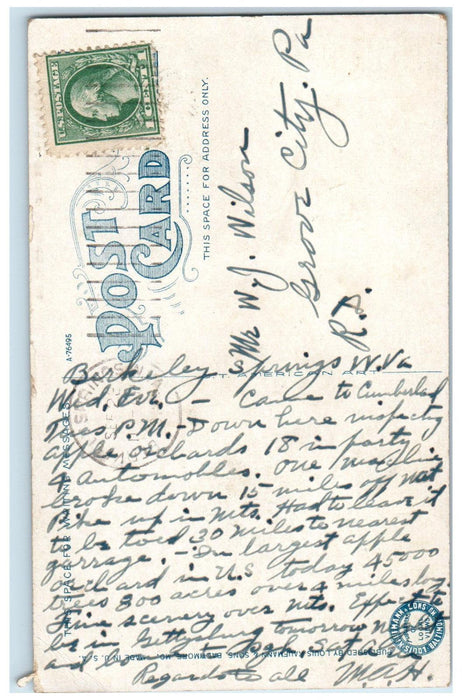 U.S. POSTAGE
1 CENT 1
POST CARD
THIS SPACE FOR ADDRESS ONLY.
Mr W. J. Wilson
Grove City, Pa
R.D.
A-76495
THIS SPACE FOR WRITING MESSAGES
AMERICAN ART
Berkeley Springs W. Va
Wed, Eve. — Came to Cumberland
Tues P.M. - Down here inspecting
apple orchards 18 in party
4 automobiles. One machine
broke down 15 miles off Nat
Pike up in Mts. Had to leave it
to be towed 30 miles to nearest
garrage. - In largest apple
orchard in U.S. today 45000
trees 800 acres over 4 miles long.
Fine scenery over mts. Expect to
be in Gettysburg tomorrow night
and
Regards to all M.A.H.
PUBLISHED BY LOUIS KAUFMANN & SONS, BALTIMORE, MD., MADE IN U.S.A.